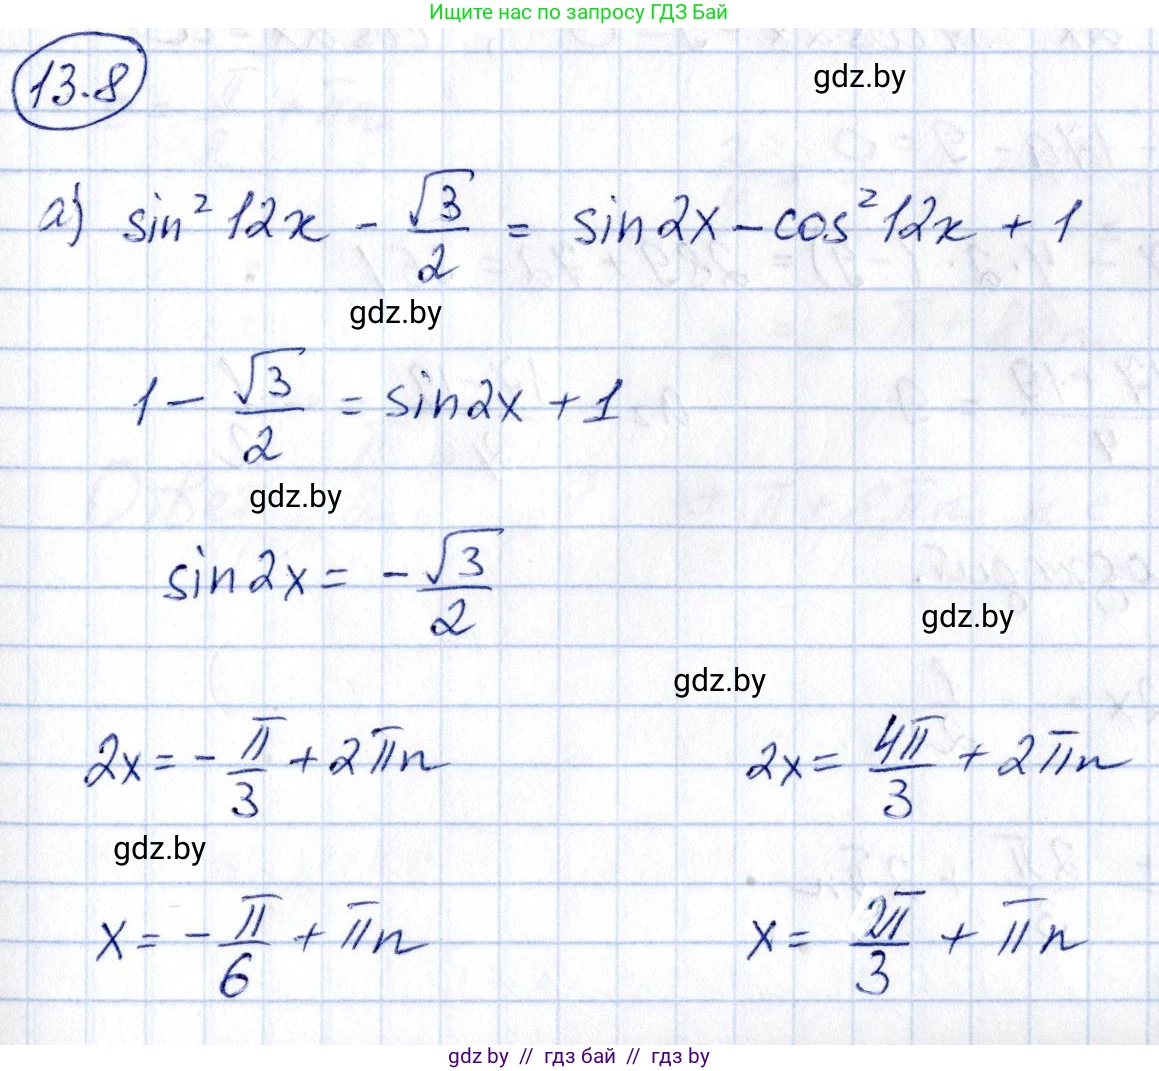 Ищите нас по запросу ГДЗ Бай
13.8
gdz.by
а) sin² 12x - √3/2 = sin2x - cos² 12x + 1
gdz.by
1 - √3/2 = sin2x + 1
gdz.by
sin2x = - √3/2
gdz.by
gdz.by
2x = - π/3 + 2πn 2x = 4π/3 + 2πn
gdz.by
x = - π/6 + πn x = 2π/3 + πn
gdz.by // гдз бай // гдз by